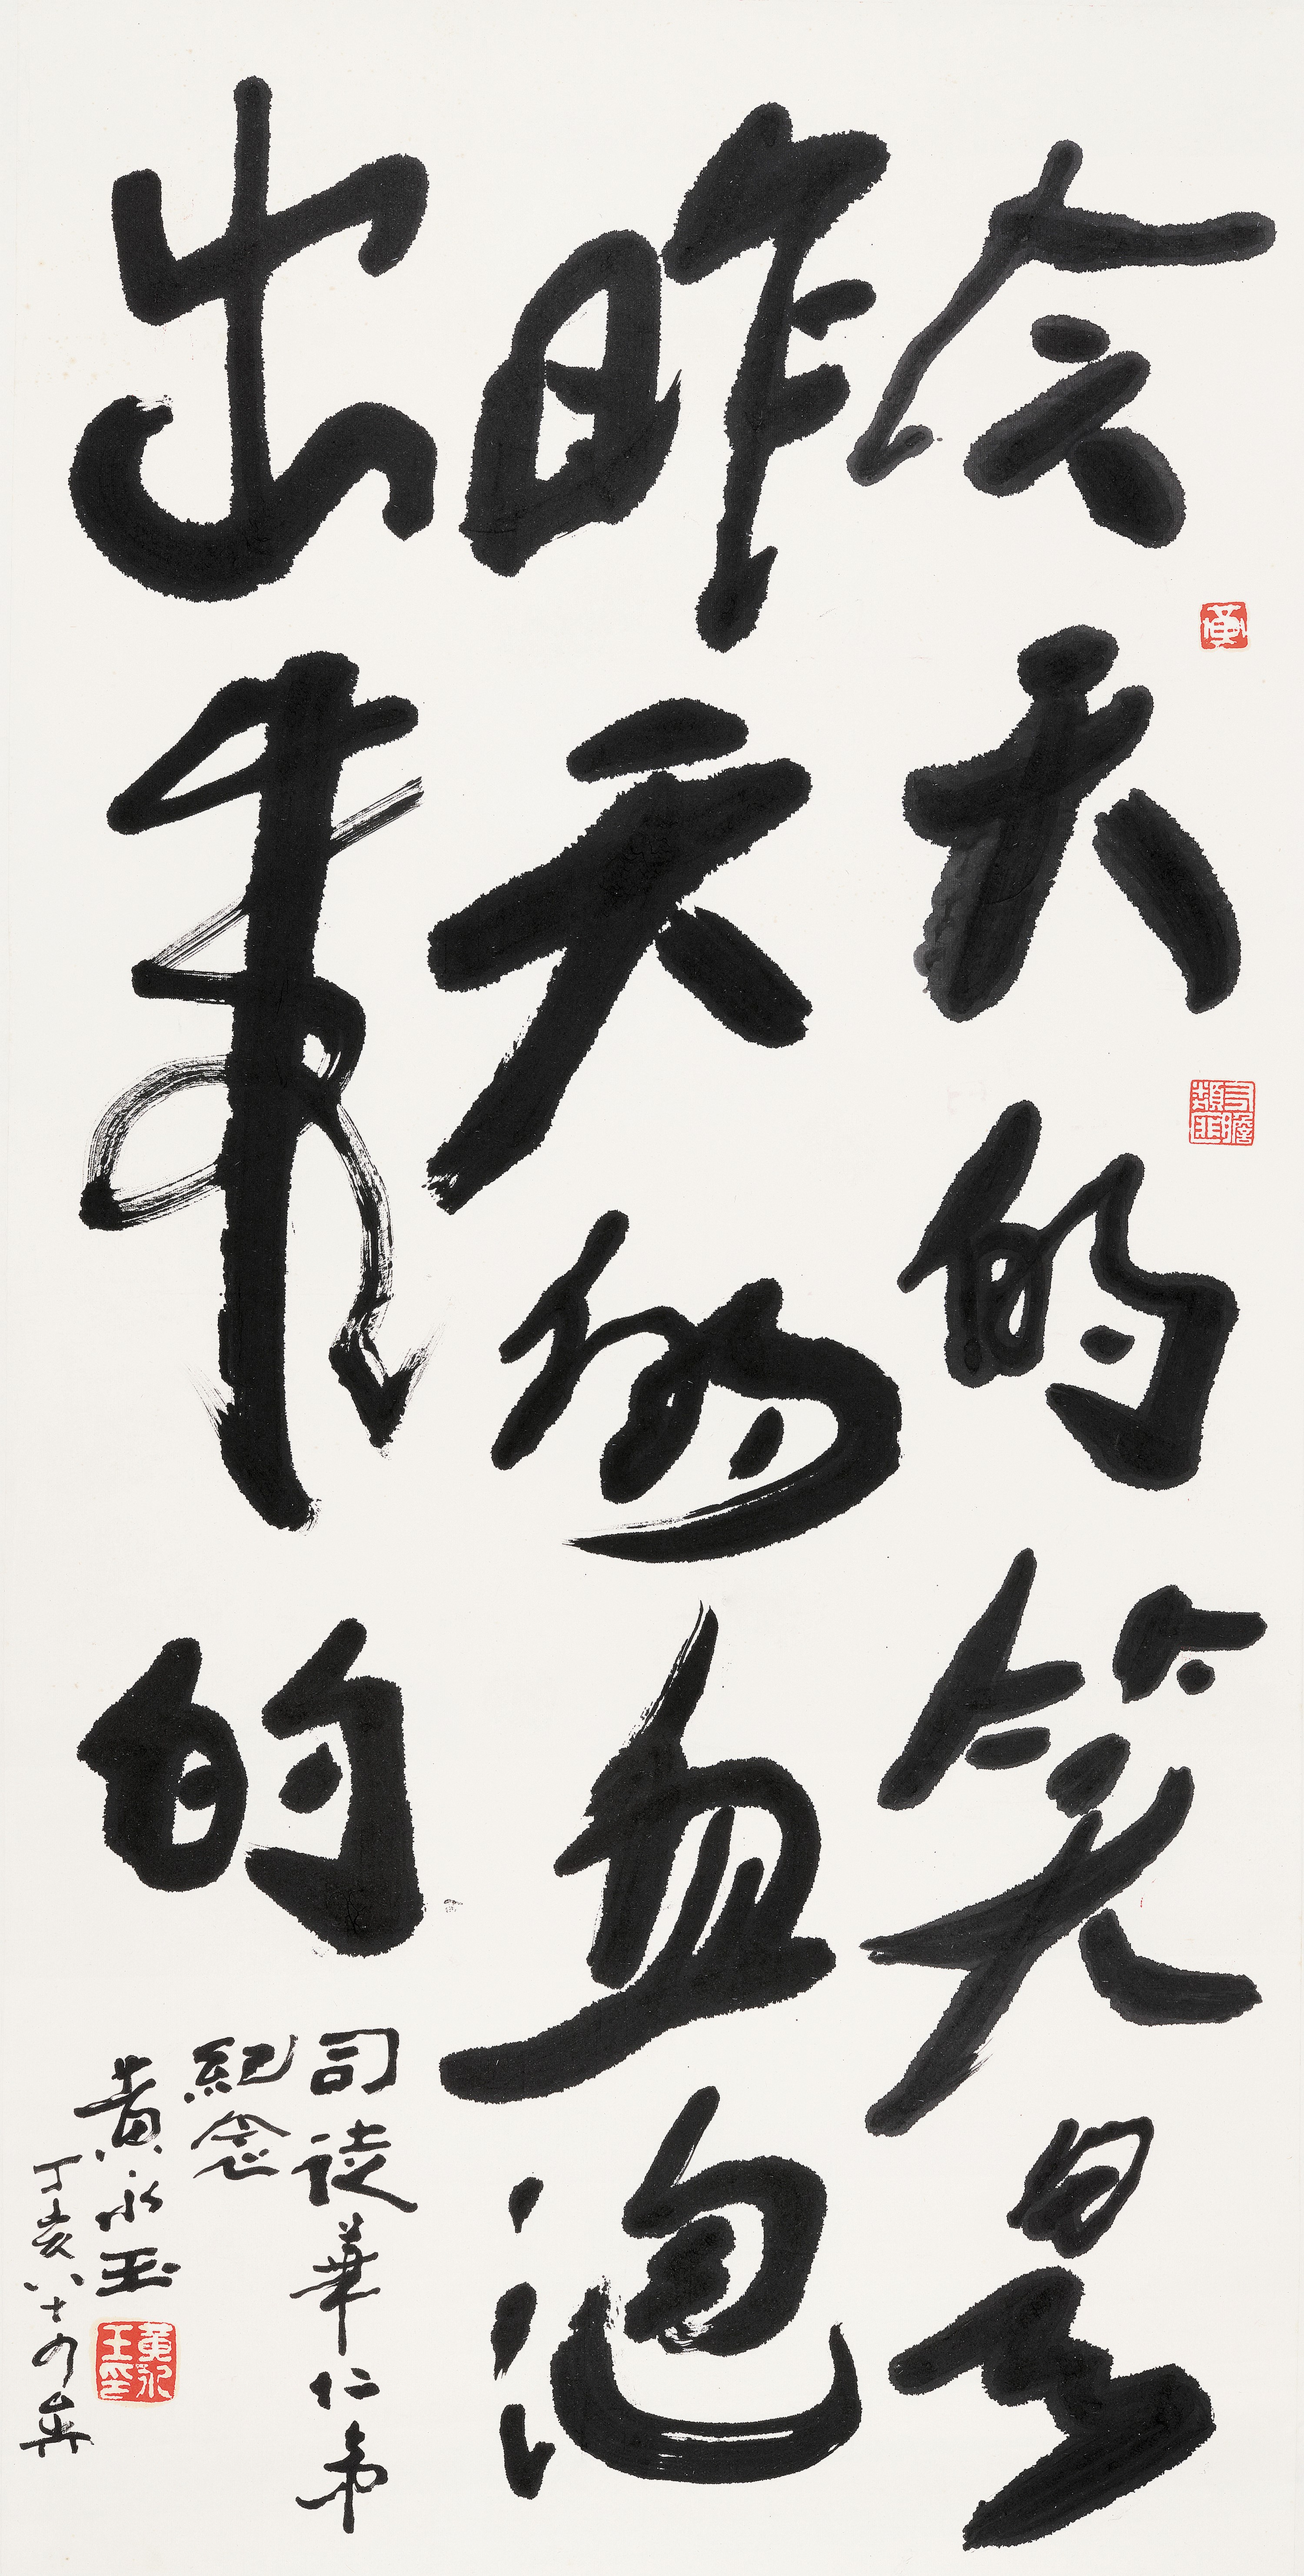 今天的笑是
昨天的血泡
出來的
司徒華仁弟
紀念
黄永玉
丁亥八十四矣
黃永玉印